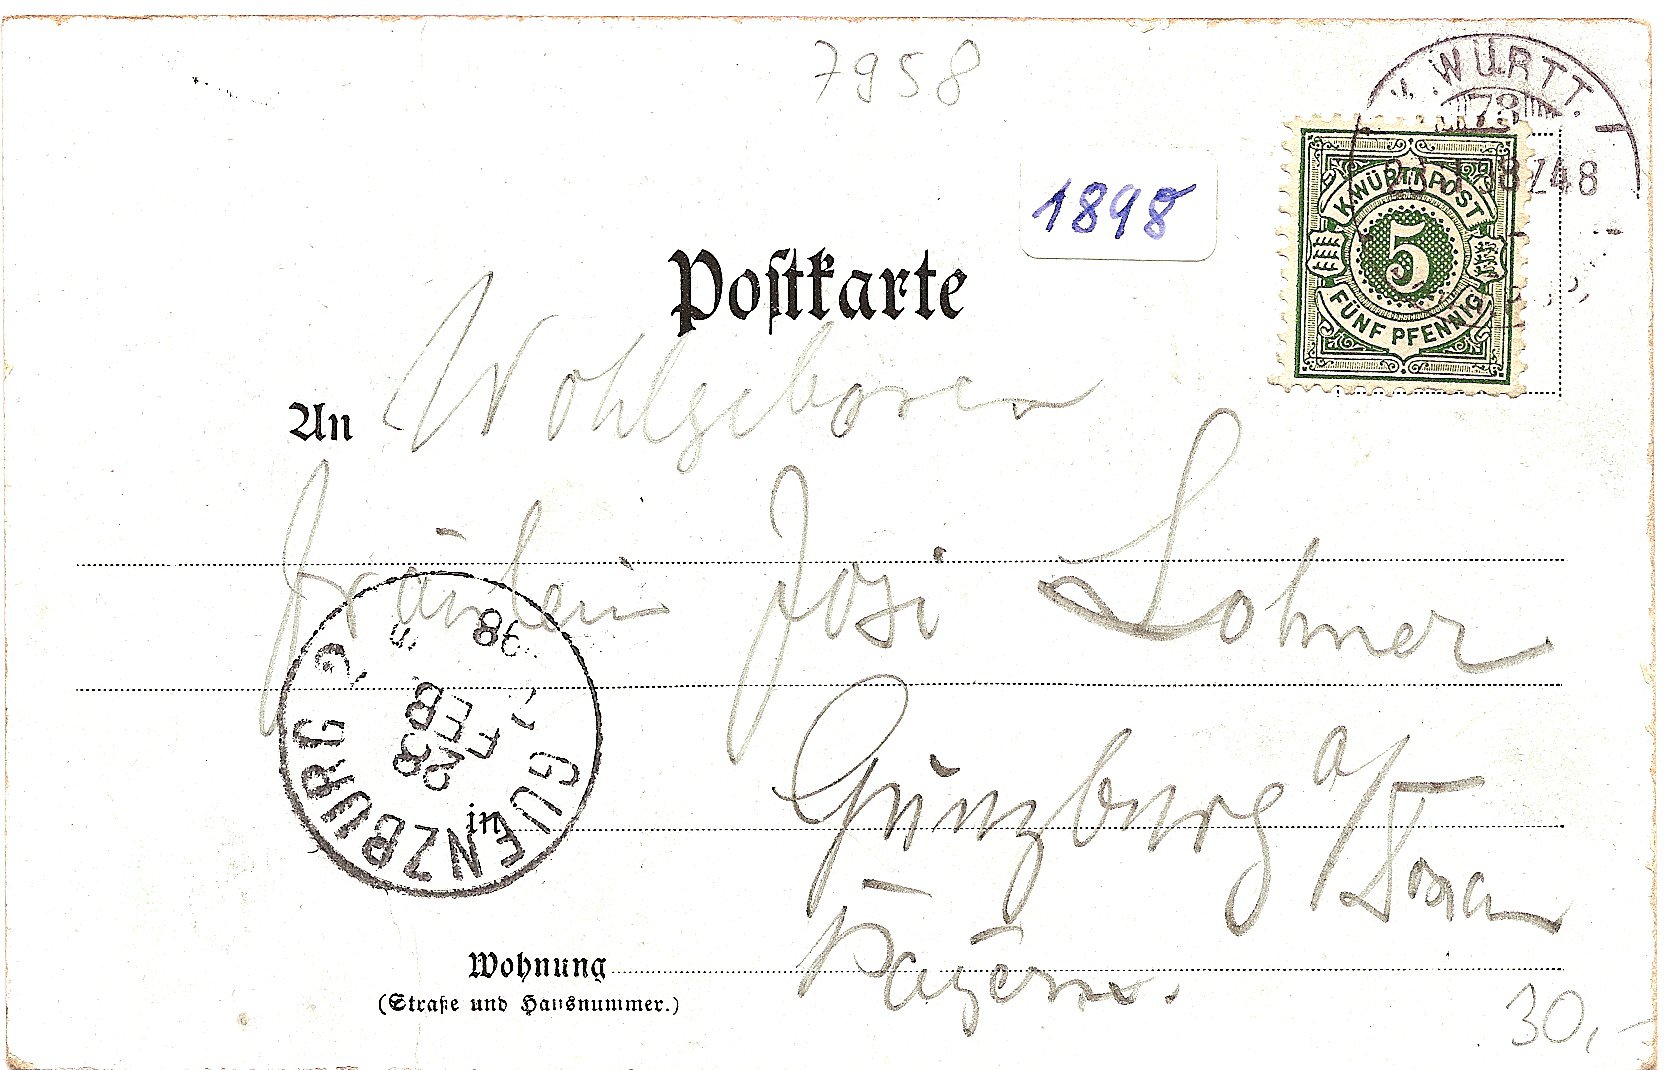 7958
K. WÜRTT.
78
Z48
1898
K. WÜRTT. POST
5
FÜNF PFENNIG
Postkarte
An Wohlgeboren
Fräulein Josi Lohner
GUENZBURG
28
FEB
98
in Günzburg a/Donau
Bayern.
Wohnung
(Straße und Hausnummer.)
30,-